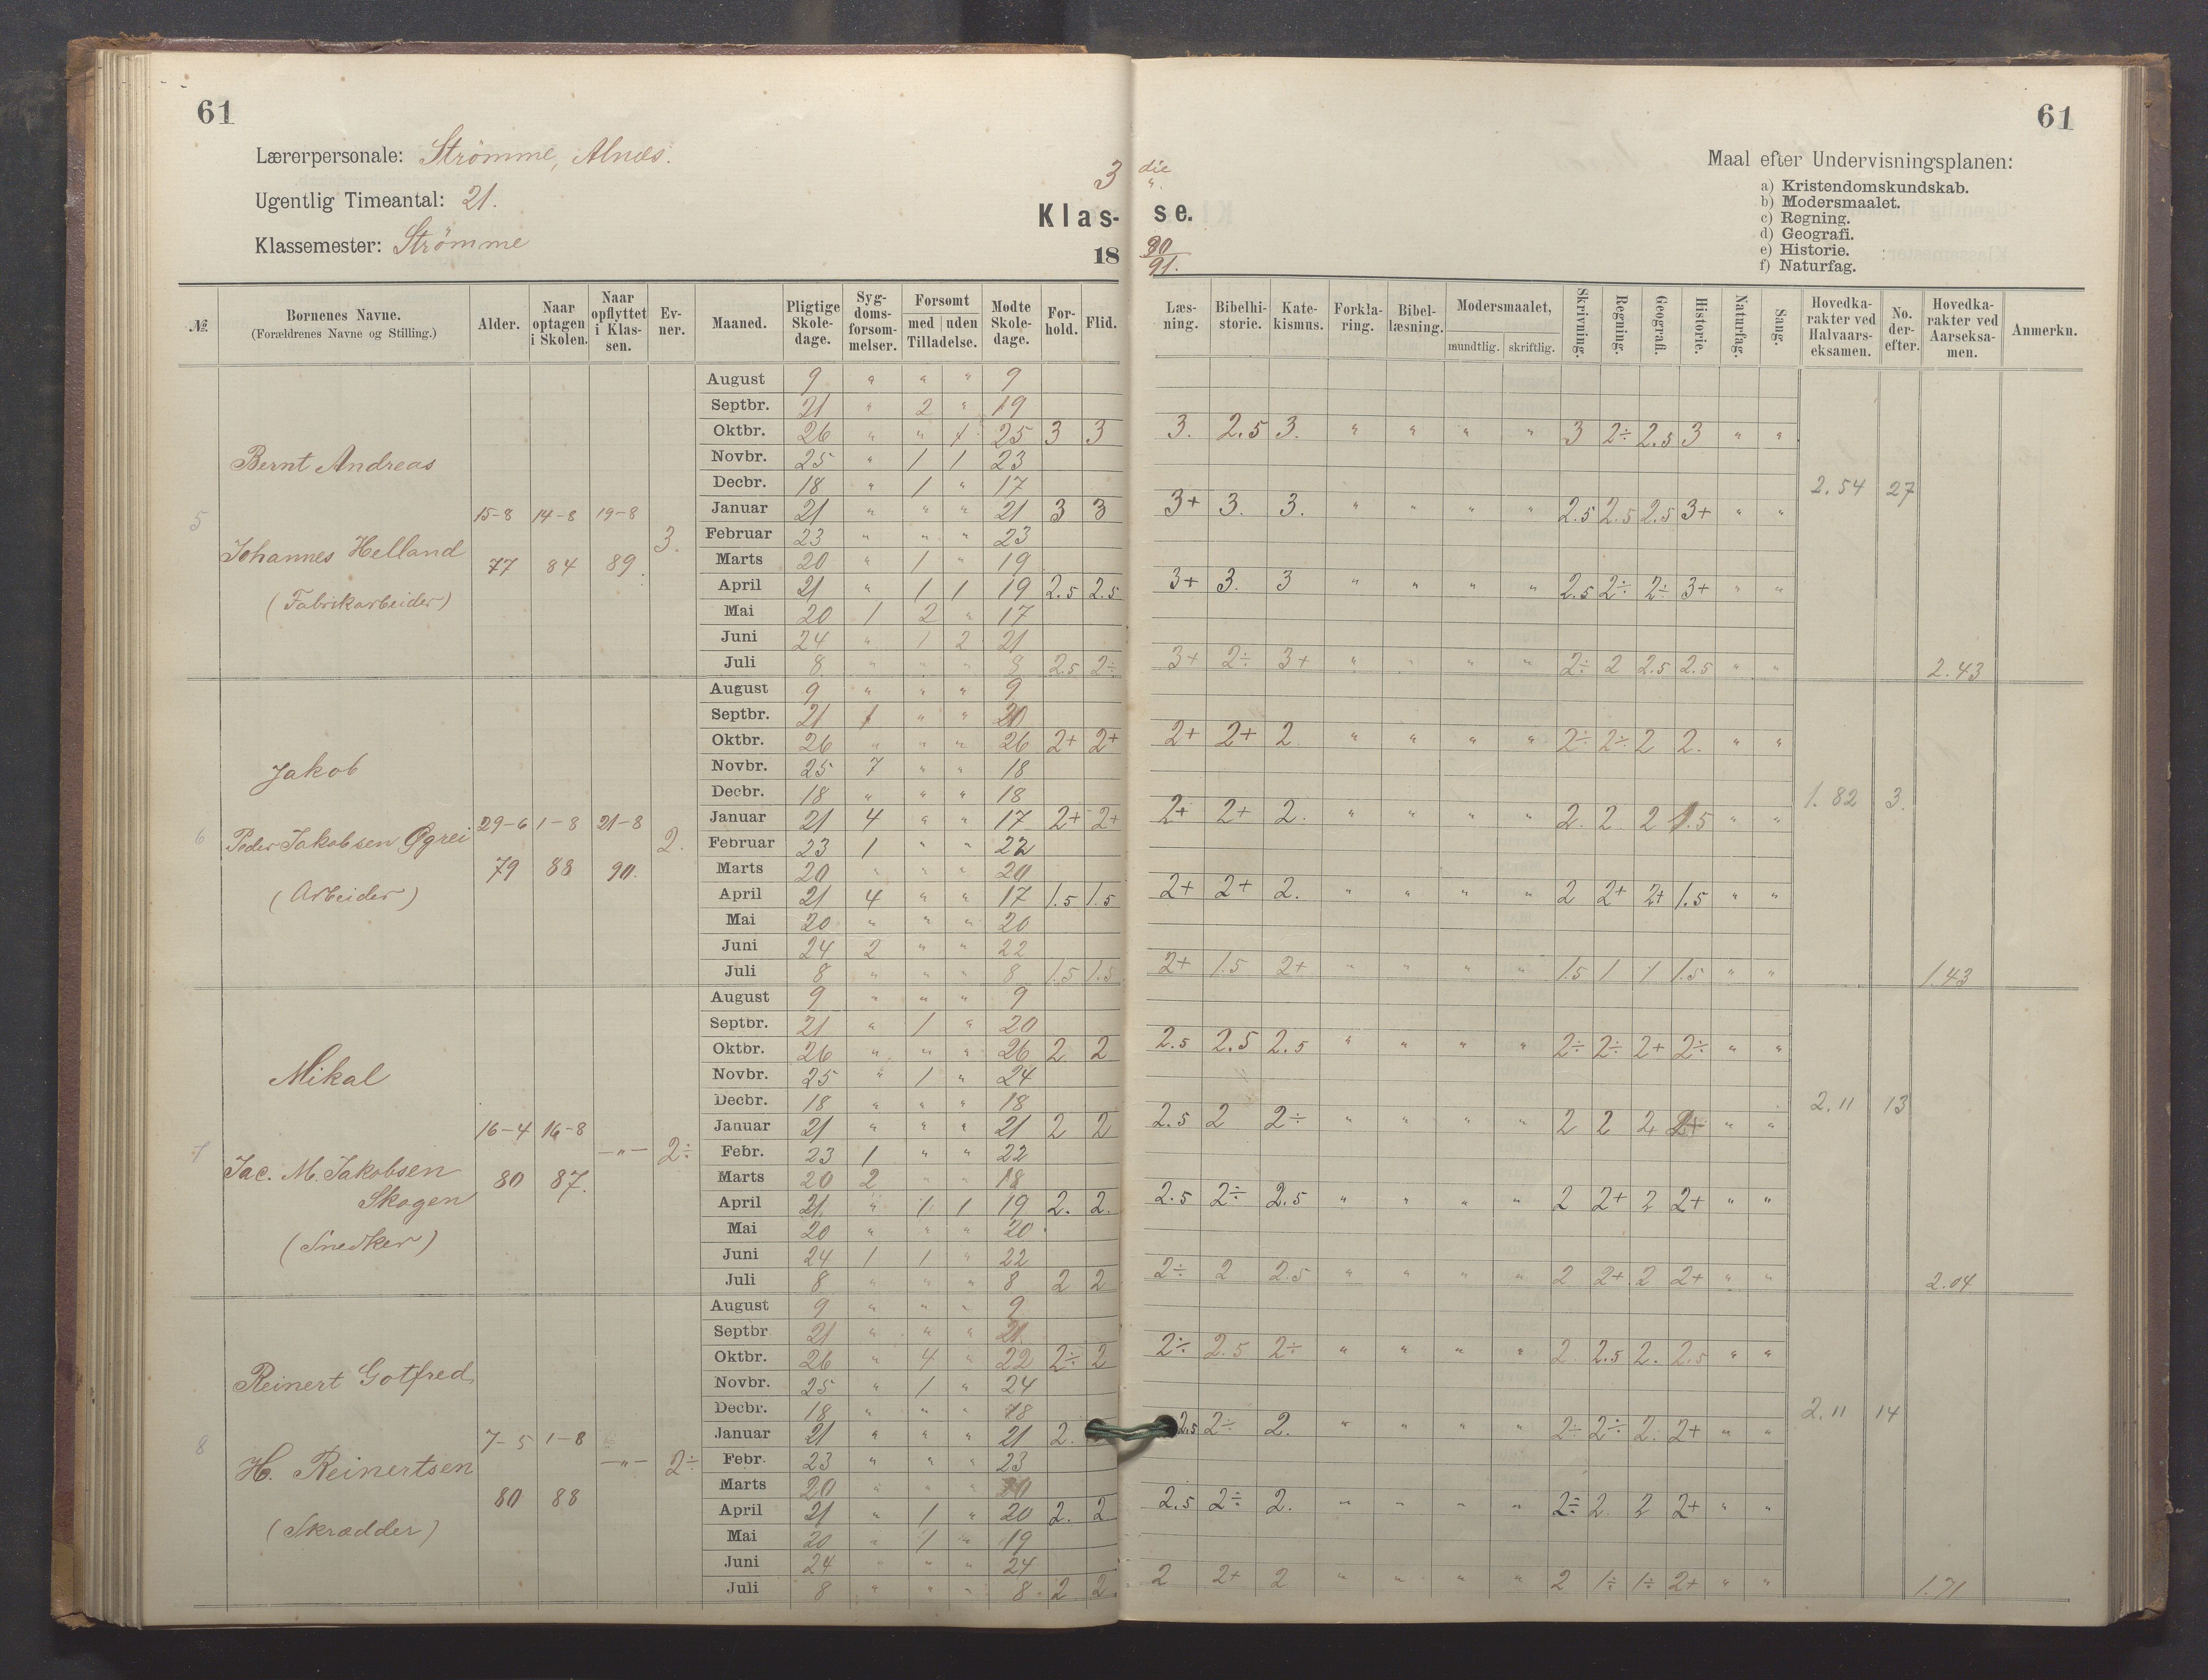 61
61
Lærerpersonale: Strömme, Alnæs.
Ugentlig Timeantal: 21.
Klassemester: Strömme
3 die
Klas- se.
18 90/91.
Maal efter Undervisningsplanen:
a) Kristendomskundskab.
b) Modersmaalet.
c) Regning.
d) Geografi.
e) Historie.
f) Naturfag.
№ | Børnenes Navne. (Forældrenes Navne og Stilling.) | Alder. | Naar optagen i Skolen. | Naar opflyttet i Klassen. | Ev-ner. | Maaned. | Pligtige Skole-dage. | Syg-doms-forsøm-melser. | Forsømt med uden Tilladelse. | Mødte Skole-dage. | For-hold. | Flid. | Læs-ning. | Bibelhi-storie. | Kate-kismus. | Forkla-ring. | Bibel-læsning. | Modersmaalet, mundtlig. skriftlig. | Skrivning. | Regning. | Geografi. | Historie. | Naturfag. | Sang. | Hovedka-rakter ved Halvaars-eksamen. | No. der-efter. | Hovedka-rakter ved Aarseksa-men. | Anmerkn.
5 Bernt Andreas
Johannes Helland
(Fabrikarbeider)
15-8 77 | 14-8 84 | 19-8 89 | 3.
August 9 " " " 9
Septbr. 21 " 2 " 19
Oktbr. 26 " " 1 25 3 3 | 3. 2.5 3. " " " " 3 2÷ 2.5 3 " "
Novbr. 25 " 1 1 23
Decbr. 18 " 1 " 17 | 2.54 27
Januar 21 " " " 21 3 3 | 3+ 3. 3. " " " " 2.5 2.5 2.5 3+ " "
Februar 23 " " " 23
Marts 20 " 1 " 19
April 21 " 1 1 19 2.5 2.5 | 3+ 3. 3 " " " " 2.5 2÷ 2÷ 3+ " "
Mai 20 1 2 " 17
Juni 24 " 1 2 21
Juli 8 " " " 8 2.5 2÷ | 3+ 2÷ 3+ " " " " 2÷ 2 2.5 2.5 " " 2.43
6 Jakob
Peder Jakobsen Øgrei
(Arbeider)
29-6 79 | 1-8 88 | 21-8 90. | 2.
August 9 " " " 9
Septbr. 21 1 " " 20
Oktbr. 26 " " " 26 2+ 2+ | 2+ 2+ 2 " " " " 2÷ 2÷ 2 2. " "
Novbr. 25 7 " " 18
Decbr. 18 " " " 18 | 1.82 3.
Januar 21 4 " " 17 2+ 2+ | 2+ 2+ 2. " " " " 2. 2. 2 1.5 " "
Februar 23 1 " " 22
Marts 20 " " " 20
April 21 4 " " 17 1.5 1.5 | 2+ 2+ 2. " " " " 2 2+ 2+ 1.5 " "
Mai 20 " " " 20
Juni 24 2 " " 22
Juli 8 " " " 8 1.5 1.5 | 2+ 1.5 2+ " " " " 1.5 1 1 1.5 " " 1.43
7 Mikal
Jac. M. Jakobsen
Skogen
(Snedker)
16-4 80 | 16-8 87. | —"— | 2÷
August 9 " " " 9
Septbr. 21 " 1 " 20
Oktbr. 26 " " " 26 2 2 | 2.5 2.5 2.5 " " " " 2÷ 2÷ 2+ 2÷ " "
Novbr. 25 " 1 " 24
Decbr. 18 " " " 18 | 2.11 13
Januar 21 " " " 21 2 2 | 2.5 2 2÷ " " " " 2 2 2 2+ " "
Febr. 23 1 " " 22
Marts 20 2 " " 18
April 21 " 1 1 19 2. 2. | 2.5 2÷ 2.5 " " " " 2 2+ 2 2+ " "
Mai 20 " " " 20
Juni 24 1 1 " 22
Juli 8 " " " 8 2 2 | 2÷ 2 2.5 " " " " 2 2+ 2 2+ " " 2.04
8 Reinert Gotfred
H. Reinertsen
(Skrædder)
7-5 80 | 1-8 88 | —"— | 2÷
August 9 " " " 9
Septbr 21 " " " 21
Oktbr. 26 " 4 " 22 2÷ 2 | 2÷ 2.5 2÷ " " " " 2 2.5 2. 2.5 " "
Novbr. 25 " 1 " 24
Decbr. 18 " " " 18 | 2.11 14
Januar 21 " " " 21 2. | 2.5 2÷ 2. " " " " 2÷ 2÷ 2. 2+ " "
Febr. 23 " " " 23
Marts 20 " " " 20
April 21 " 1 " 20 2. 2 | 2.5 2÷ 2. " " " " 2÷ 2 2 2+ " "
Mai 20 " 1 " 19
Juni 24 " " " 24
Juli 8 " " " 8 2 2 | 2 2+ 2 " " " " 2 1÷ 1÷ 2+ " " 1.71